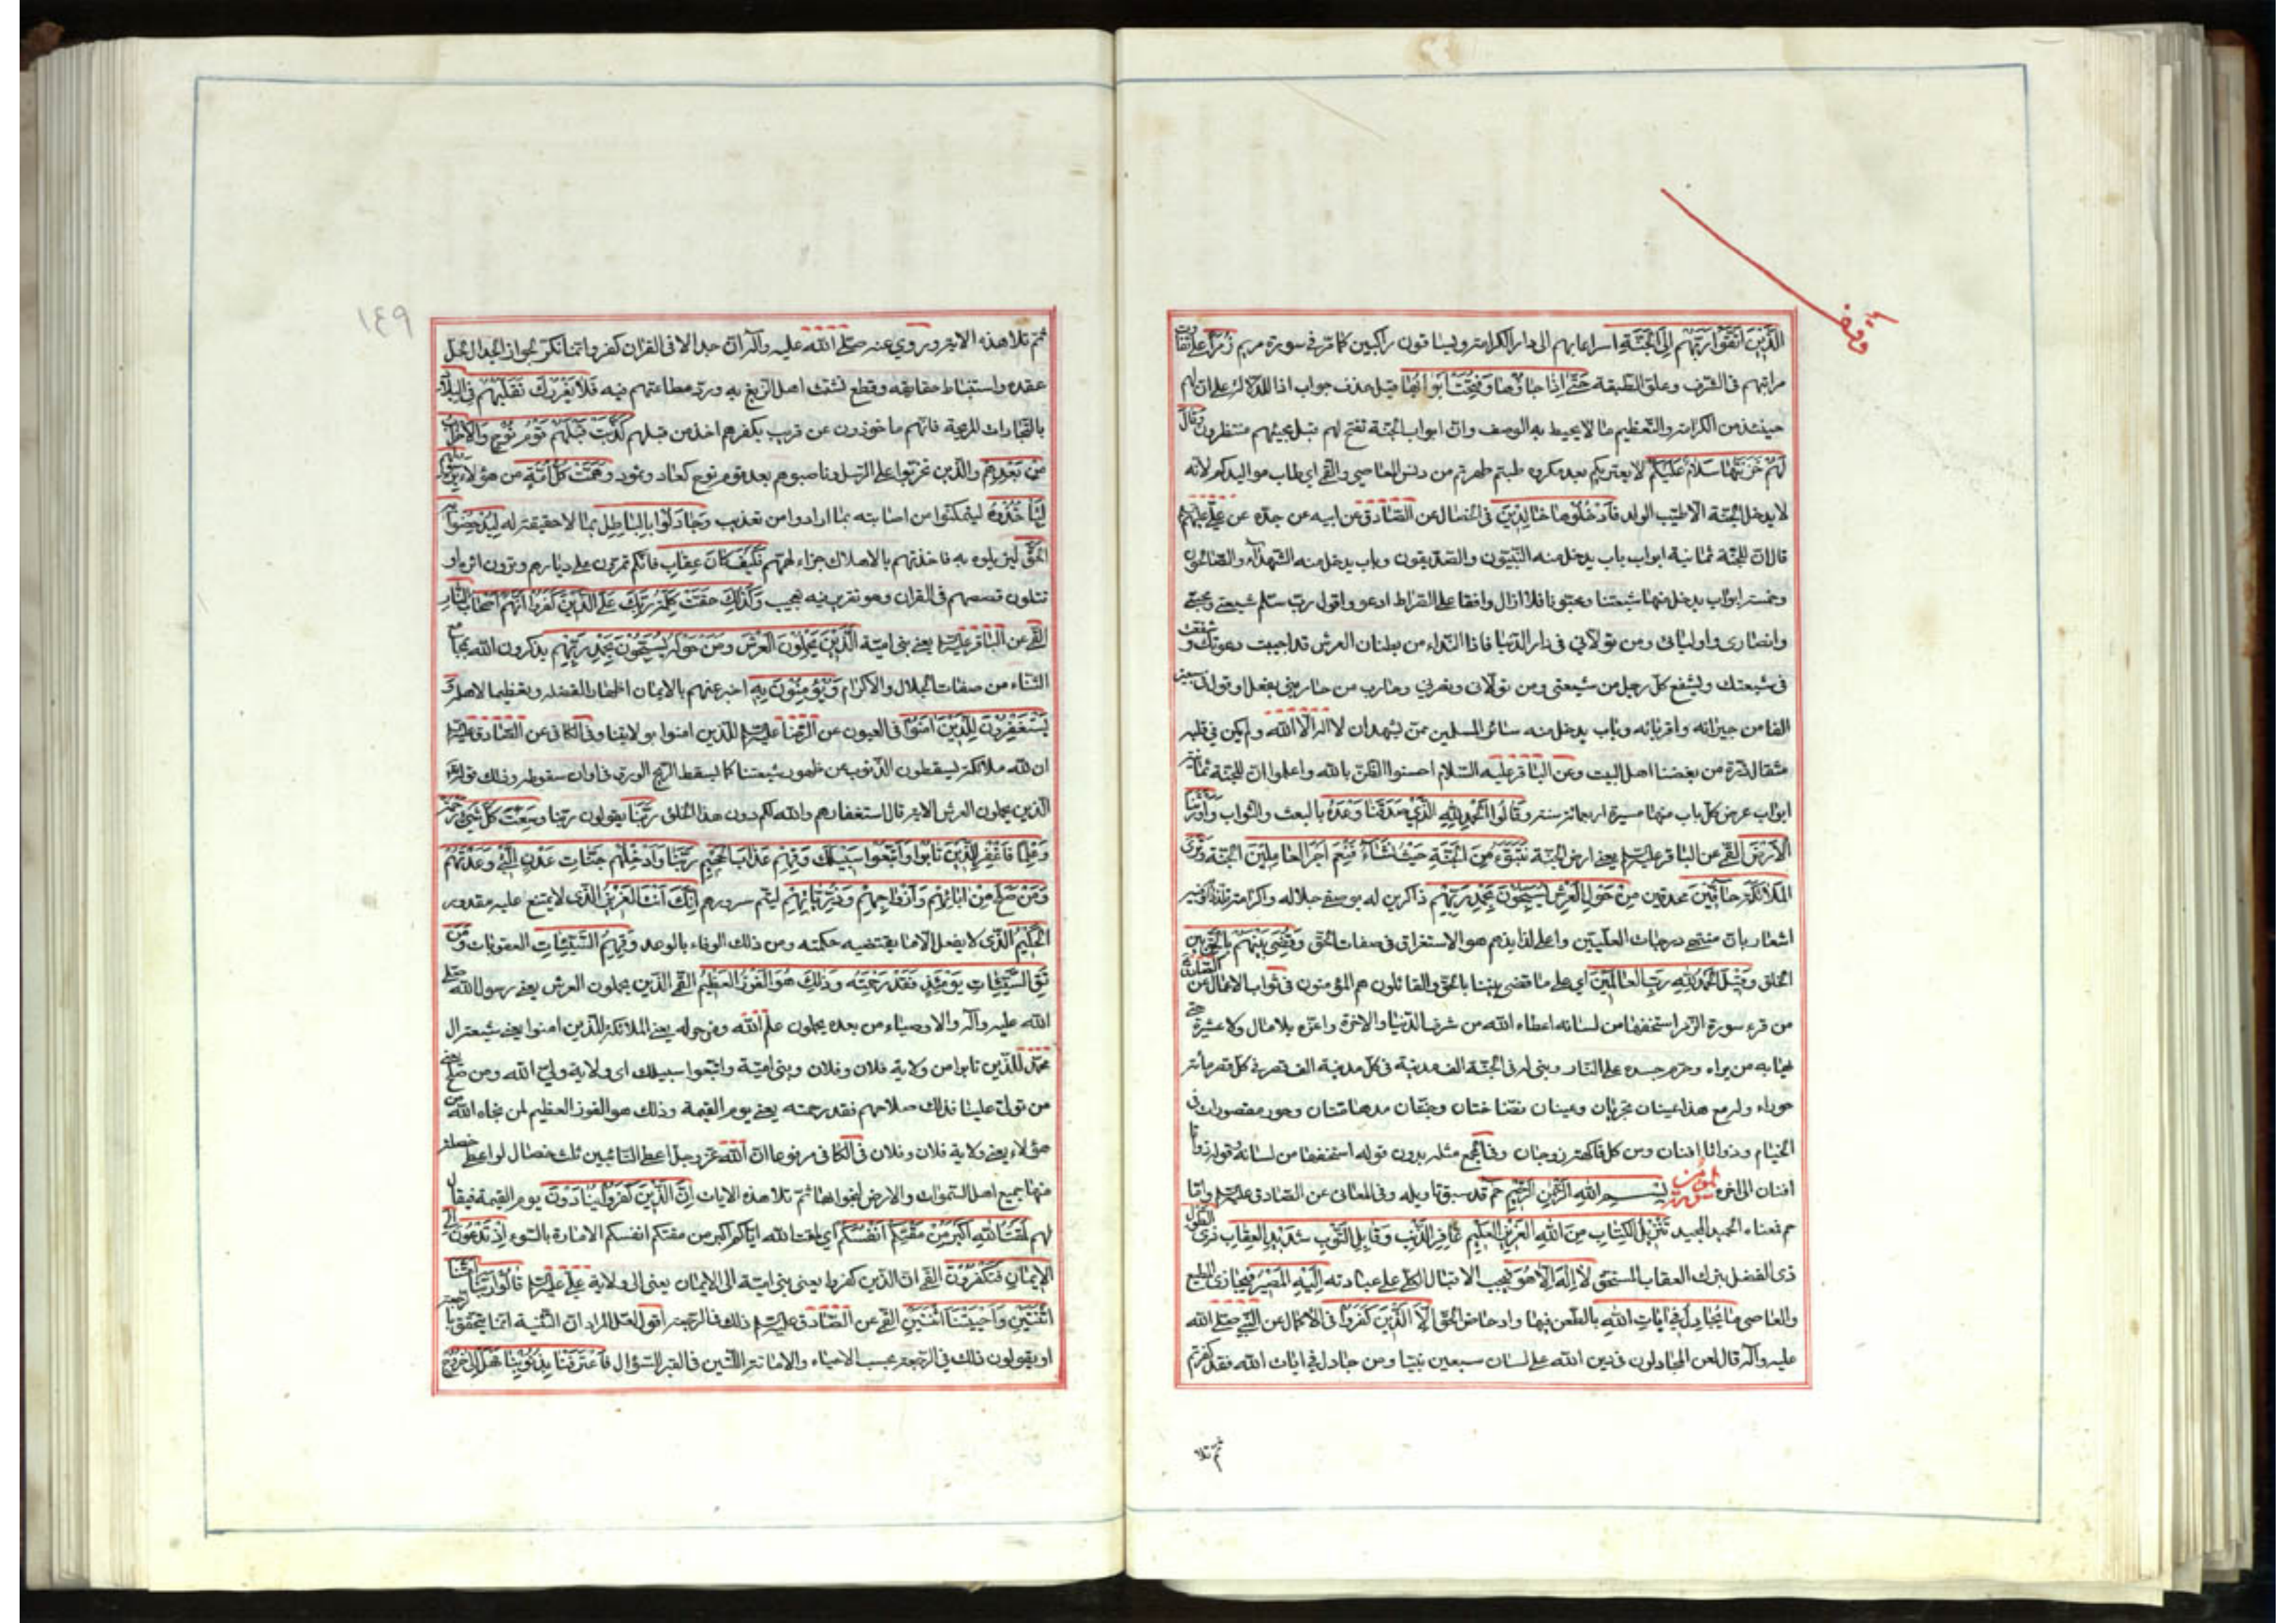 الَّذِينَ اتَّقَوْا رَبَّهُمْ إِلَى الْجَنَّةِ اسراعا بهم الى دار الكرامة ويساقون راكبين كما مرّ في سورة مريم زُمَرًا على تفاوت
مراتبهم في الشرف وعلوّ الطبقة حَتَّى إِذَا جَاؤُهَا وَفُتِحَتْ أَبْوَابُهَا قيل حذف جواب اذا للدلالة على ان لهم
حينئذ من الكرامة والتعظيم ما لا يحيط به الوصف وانّ ابواب الجنّة تفتح لهم قبل مجيئهم منتظرون وَقَالَ
لَهُمْ خَزَنَتُهَا سَلَامٌ عَلَيْكُمْ لا يعتريكم بعد مكروه طبتم طهرتم من دنس المعاصي والقمي اي طاب مواليدكم لانه
لا يدخل الجنّة الا طيّب الولد فَادْخُلُوهَا خَالِدِينَ في الخصال عن الصّادق عن ابيه عن جدّه عن عليّ عليهم
قال انّ للجنّة ثمانية ابواب باب يدخل منه النبيّون والصدّيقون وباب يدخل منه الشهدآء والصّالحون
وخمسة ابواب يدخل منها شيعتنا ومحبّونا فلا ازال واقفا على الصّراط ادعو واقول ربّ سلّم شيعتي ومحبّي
وانصاري واوليائي ومن تولّاني في دار الدّنيا فاذا النّداء من بطنان العرش قد اجيبت دعوتك وشفّعت
في شيعتك ويشفع كلّ رجل من شيعتي ومن تولّاني ونصرني وحارب من حاربني بفعل او قول في سبعين
الفا من جيرانه واقربائه وباب يدخل منه سائر المسلمين ممّن يشهد ان لا اله الّا الله ولم يكن في قلبه
مثقال ذرّة من بغضنا اهل البيت وعن الباقر عليه السّلام احسنوا الظنّ بالله واعلموا انّ للجنّة ثمانية
ابواب عرض كلّ باب منها مسيرة اربعمائة سنة وَقَالُوا الْحَمْدُ لِلَّهِ الَّذِي صَدَقَنَا وَعْدَهُ بالبعث والثواب وَأَوْرَثَنَا
الْأَرْضَ القمي عن الباقر عليه السلام يعني ارض الجنّة نَتَبَوَّءُ مِنَ الْجَنَّةِ حَيْثُ نَشَاءُ فَنِعْمَ أَجْرُ الْعَامِلِينَ الجنّة وَتَرَى
الْمَلَائِكَةَ حَافِّينَ محدقين مِنْ حَوْلِ الْعَرْشِ يُسَبِّحُونَ بِحَمْدِ رَبِّهِمْ ذاكرين له بوصفي جلاله واكرامه تلذّذا به وفيه
اشعار بانّ منتهى درجات العلّيّين واعلى لذايذهم هو الاستغراق في صفات الحقّ وَقُضِيَ بَيْنَهُمْ بِالْحَقِّ بين
الخلق وَقِيلَ الْحَمْدُ لِلَّهِ رَبِّ الْعَالَمِينَ اي على ما قضي بيننا بالحقّ والقائلون هم المؤمنون في ثواب الاعمال عن الصّادق
من قرء سورة الزّمر استخفّها من لسانه اعطاه الله من شرف الدّنيا والاخرة واعزّه بلا مال ولا عشيرة حتّى
يهابه من يراه وحرّم جسده على النّار وبنى له في الجنّة الف مدينة في كلّ مدينة الف قصر في كلّ قصر مأئة
حوراء وله مع هذا عينان تجريان وعينان نضّاختان وجنّتان مدهامّتان وحور مقصورات في
الخيام وذواتا افنان ومن كلّ فاكهة زوجان وفي المجمع مثله بدون قوله استخفّها من لسانه وقوله ذواتا
افنان الى اخره سورة المؤمن بِسْمِ اللَّهِ الرَّحْمٰنِ الرَّحِيمِ حم قد سبق تاويله وفي المعاني عن الصّادق عليه السلام وامّا
حم فمعناه الحميد المجيد تَنْزِيلُ الْكِتَابِ مِنَ اللَّهِ الْعَزِيزِ الْعَلِيمِ غَافِرِ الذَّنْبِ وَقَابِلِ التَّوْبِ شَدِيدِ الْعِقَابِ ذِي الطَّوْلِ
ذي الفضل بترك العقاب المستحقّ لَا إِلَهَ إِلَّا هُوَ فيجب الاقبال الكلّي على عبادته إِلَيْهِ الْمَصِيرُ فيجازي المطيع
والعاصي مَا يُجَادِلُ فِي آيَاتِ اللَّهِ بالطعن فيها وادحاض الحقّ إِلَّا الَّذِينَ كَفَرُوا في الاكمال عن النّبي صلّى الله
عليه وآله قال لعن المجادلون في دين الله على لسان سبعين نبيّا ومن جادل في ايات الله فقد كفر ثمّ
ثمّ تلا
١٤٩
ثمّ تلا هذه الاية وروي عنه صلّى الله عليه وآله انّ جدالا في القران كفر وانّما نكّر لجواز الجدال لحلّ
عقده واستنباط حقايقه وقطع تشبّث اهل الزّيغ به وردّ مطاعنهم فيه فَلَا يَغْرُرْكَ تَقَلُّبُهُمْ فِي الْبِلَادِ
بالتّجارات المربحة فانّهم ماخوذون عن قريب بكفرهم اخذ من قبلهم كَذَّبَتْ قَبْلَهُمْ قَوْمُ نُوحٍ وَالْأَحْزَابُ
مِنْ بَعْدِهِمْ والّذين تحزّبوا على الرّسل وناصبوهم بعد قوم نوح كعاد وثمود وَهَمَّتْ كُلُّ أُمَّةٍ من هؤلاء بِرَسُولِهِمْ
لِيَأْخُذُوهُ ليتمكّنوا من اصابته بما ارادوا من تعذيب وَجَادَلُوا بِالْبَاطِلِ بما لا حقيقة له لِيُدْحِضُوا بِهِ
الْحَقَّ ليزيلوه به فاخذتهم بالاهلاك جزاء لهمّهم فَكَيْفَ كَانَ عِقَابِ فانّكم تمرّون على ديارهم وترون اثره او
تتلون قصصهم في القران وهو تقرير فيه تعجيب وَكَذَلِكَ حَقَّتْ كَلِمَةُ رَبِّكَ عَلَى الَّذِينَ كَفَرُوا أَنَّهُمْ أَصْحَابُ النَّارِ
القمي عن الباقر عليه السلام يعني بني اميّة الَّذِينَ يَحْمِلُونَ الْعَرْشَ وَمَنْ حَوْلَهُ يُسَبِّحُونَ بِحَمْدِ رَبِّهِمْ يذكرون الله بمجامع
الثناء من صفات الجلال والاكرام وَيُؤْمِنُونَ بِهِ اخبر عنهم بالايمان اظهارا لفضله وتعظيما لاهله وَ
يَسْتَغْفِرُونَ لِلَّذِينَ آمَنُوا في العيون عن الرّضا عليه السلام للّذين امنوا بولايتنا وفي الكافي عن الصّادق عليه السلام
ان لله ملائكة يسقطون الذّنوب عن ظهور شيعتنا كما يسقط الرّيح الورق في اوان سقوطه وذلك قوله تعالى
الّذين يحملون العرش الاية قال استغفارهم والله لكم دون هذا الخلق رَبَّنَا يقولون ربّنا وَسِعْتَ كُلَّ شَيْءٍ رَحْمَةً
وَعِلْمًا فَاغْفِرْ لِلَّذِينَ تَابُوا وَاتَّبَعُوا سَبِيلَكَ وَقِهِمْ عَذَابَ الْجَحِيمِ رَبَّنَا وَأَدْخِلْهُمْ جَنَّاتِ عَدْنٍ الَّتِي وَعَدْتَهُمْ
وَمَنْ صَلَحَ مِنْ آبَائِهِمْ وَأَزْوَاجِهِمْ وَذُرِّيَّاتِهِمْ ليتمّ سرورهم إِنَّكَ أَنْتَ الْعَزِيزُ الّذي لا يمتنع عليه مقدور
الْحَكِيمُ الّذي لا يفعل الّا ما يقتضيه حكمته ومن ذلك الوفاء بالوعد وَقِهِمُ السَّيِّئَاتِ العقوبات وَمَنْ
تَقِ السَّيِّئَاتِ يَوْمَئِذٍ فَقَدْ رَحِمْتَهُ وَذَلِكَ هُوَ الْفَوْزُ الْعَظِيمُ القمي الّذين يحملون العرش يعني رسول الله صلّى
الله عليه وآله والاوصياء من بعده يحملون علم الله ومن حوله يعني الملائكة للّذين امنوا يعني شيعة ال
محمّد للّذين تابوا من ولاية فلان وفلان وبني اميّة واتّبعوا سبيلك اي ولاية وليّ الله ومن صلح يعني
من تولّى عليّا فذلك صلاحهم فقد رحمته يعني يوم القيمة وذلك هو الفوز العظيم لمن نجاه الله من
هؤلاء يعني ولاية فلان وفلان في الكافي مرفوعا انّ الله عزّ وجلّ اعطى التائبين ثلث خصال لو اعطى خصلة
منها جميع اهل السّموات والارض لنجوا بها ثمّ تلا هذه الايات إِنَّ الَّذِينَ كَفَرُوا يُنَادَوْنَ يوم القيمة فيقال
لهم لَمَقْتُ اللَّهِ أَكْبَرُ مِنْ مَقْتِكُمْ أَنْفُسَكُمْ اي لمقت الله ايّاكم اكبر من مقتكم انفسكم الامّارة بالسّوء إِذْ تُدْعَوْنَ إِلَى
الْإِيمَانِ فَتَكْفُرُونَ القمي انّ الّذين كفروا يعني بني اميّة الى الايمان يعني الى ولاية عليّ عليه السلام قَالُوا رَبَّنَا أَمَتَّنَا
اثْنَتَيْنِ وَأَحْيَيْتَنَا اثْنَتَيْنِ القمي عن الصّادق عليه السلام ذلك في الرّجعة اقول لعلّ المراد انّ التّثنية انّما يتحقّق بالرّجعة
او يقولون ذلك في الرّجعة بحسب الاحياء والاماتة اللّتين في القبر للسّؤال فَاعْتَرَفْنَا بِذُنُوبِنَا فَهَلْ إِلَى خُرُوجٍ